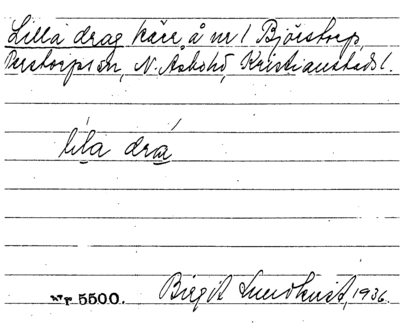 Lilla drag kärr å nr 1 Björstorp,
Perstorps sn, N. Åsbohd, Kristianstads l.
lila drá
Nr 5500. Birgit Lundkvist, 1936.